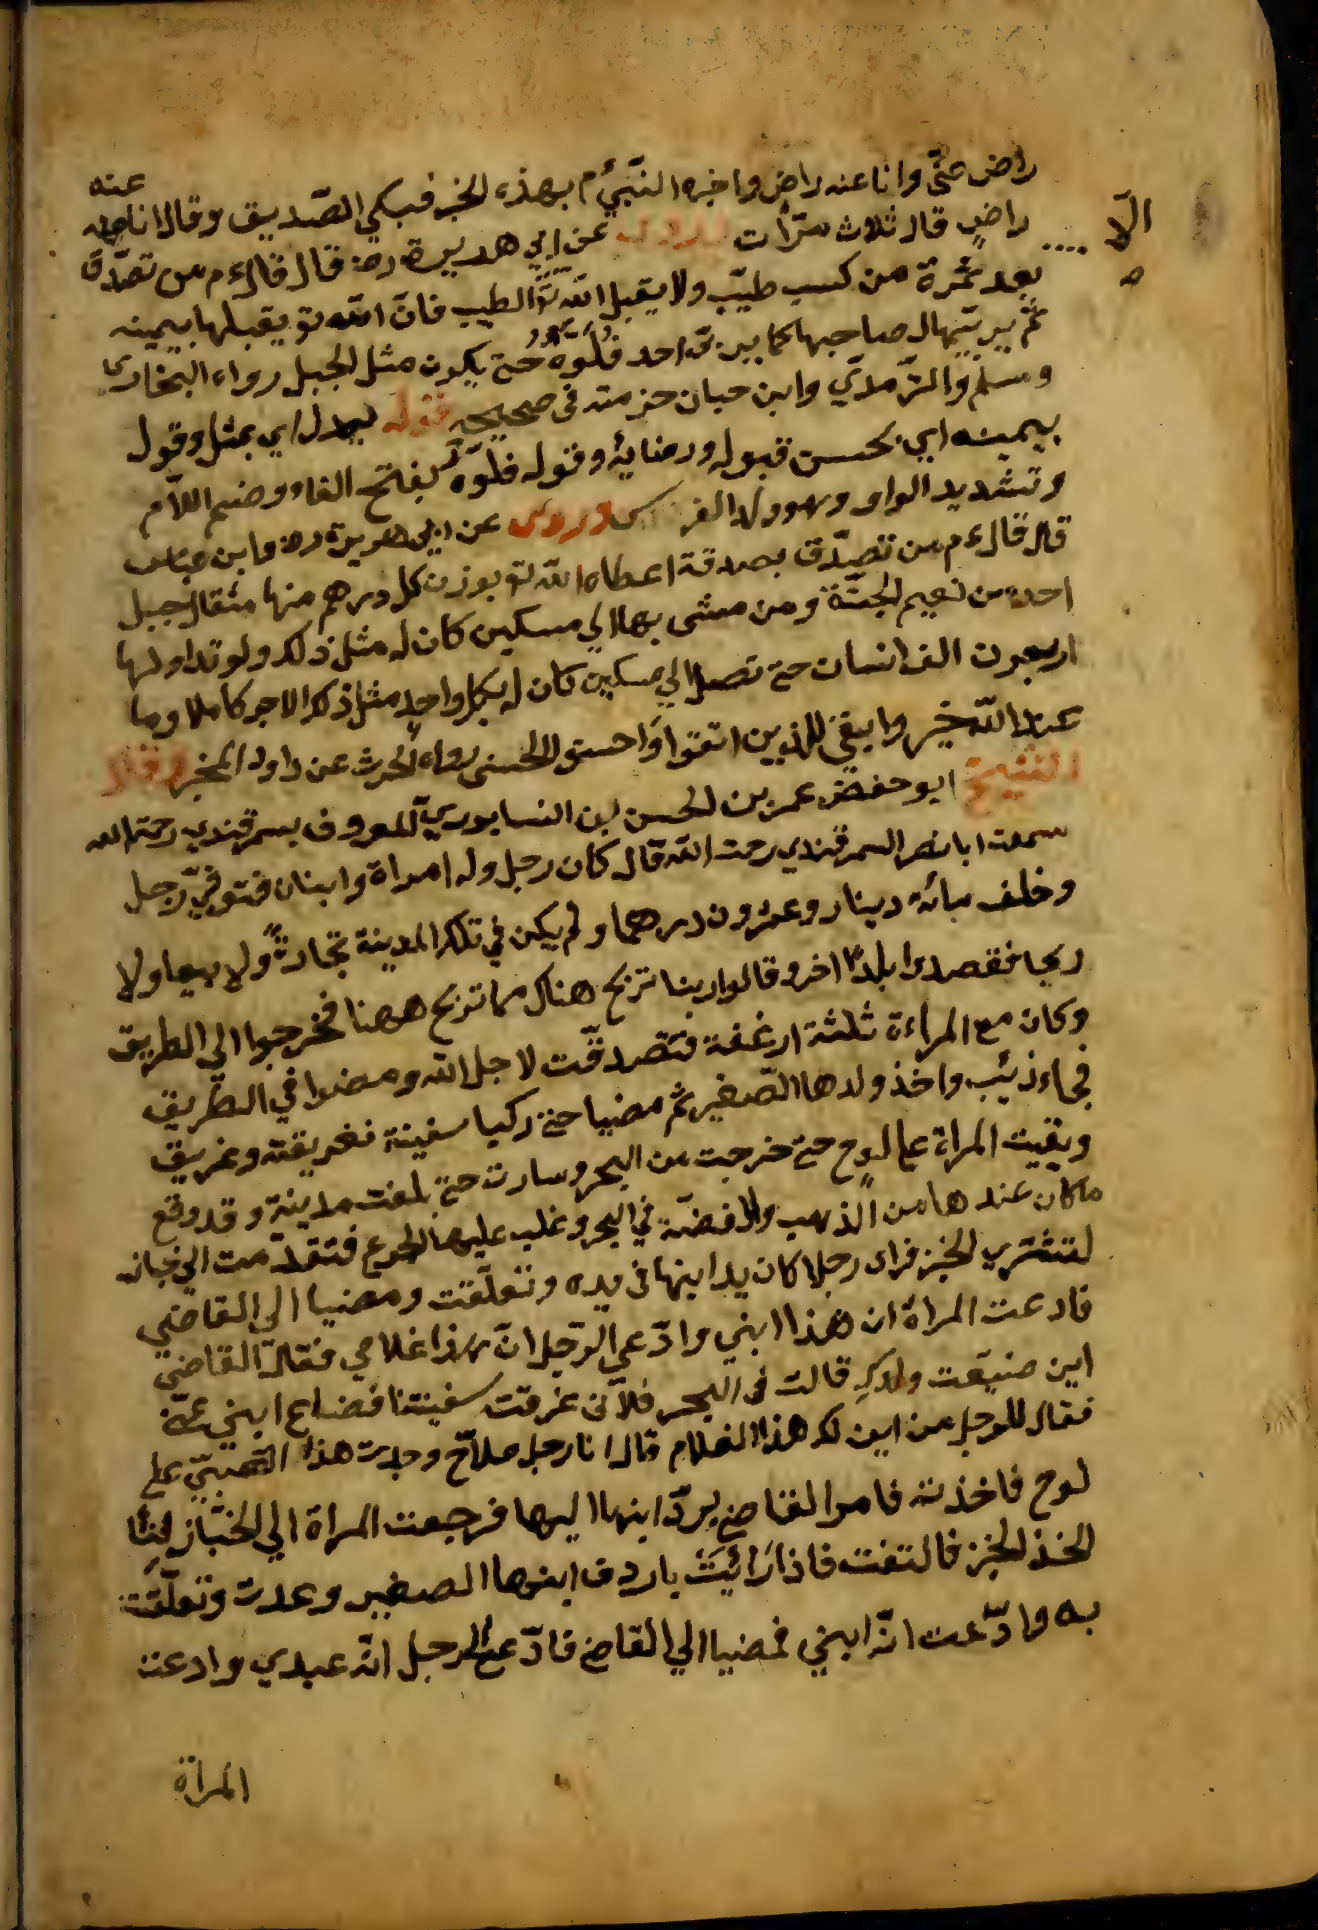 راض حتّى وانا عنه راض واخبره النّبيّ م بهذه الخبر فبكي الصّديق وقال انا عنه
راضٍ قال ثلاث مرّات عن ابي هريرة رض قال قال ءم من تصدّق
الّا
بعد تمرة من كسب طيّب ولا يقبل اللّه تو الطيب فانّ اللّه تو يقبلها بيمينه
ثمّ يربيّها لصاحبها كما يربّى احد فلوّه حتى يكون مثل الجبل رواه البخاري
ومسلم والترّمدّي وابن حبان حزمته فى صحيحه قوله بعدل اي بمثل وقول
بيمينه اي بحسن قبوله ورضايه وقوله فلوّه بفتح الفاء وضم اللاّم
وتشديد الواو وهو ولد الفرس وروى عن ابي هريرة رض وابن عباس
قال قال ءم من تصدّق بصدقة اعطاه اللّه تو بوزن كل درهم منها مثقال جبل
احد من نعيم الجنّة ومن مشى بها الي مسكين كان له مثل ذلك ولو تداولها
اربعون الف انسان حتى تصل الي مسكين كان له بكل واحد مثل ذلك الاجر كاملا وما
عند اللّه خير وابقي للذين اتقوا واحسنو الحسنى رواه الحرث عن داود المخبر وقال
الشيخ ابو حفض عمر بن الحسن بن النسابوريّ المعروف بسمرقندي رحمة الله
سمعت ابا نصر السمرقندي رحمت اللّه قال كان رجل وله امراة وابنان فتوفيّ رجل
وخلف مائة دينار وعشرون درهما ولم يكن في تلك المدينة تجارةً ولا بيعا ولا
ربحا فقصدوا بلدًا اخر وقالوا ربنا تربح هناك مما تربح ههنا فخرجوا الي الطريق
وكان مع المراءة ثلثة ارغفة فتصدقّت لاجل اللّه ومضوا في الطّريق
فجاء ذئب واخذ ولدها الصّغير ثم مضيا حتى ركبا سفينة فغريقته وغريق
وبقيت المراة على لوح حتى خرجت من البحر وسارت حتى بلغت مدينة وقد وقع
ماكان عندها من الذهب والفضّة في البحر وغلب عليها الجوع فتقدّمت الي خباز
لتشتري الخبز فراى رجلا كان يد ابنها فى يده وتعلّقت ومضيا الي القاضي
فادعت المراة ان هذا ابني وادّعي الرّجل انّ هذا غلامي فقال القاضي
اين ضيّعت ولدكِ قالت فى البحر فلانى غرقت سفينتنا فضاع ابني عنّى
فقال للرجل من اين لك هذا الغلام قال انا رجل ملاّح وجدت هذا الصّبيّ على
لوح فاخذته فامر القاضي يردّ ابنها اليها فرجعت المراة الي الخبّاز لتا
لخذ الخبز فالتفت فاذا رائيت باردف ابنها الصغير وعدت وتعلّقت
به وادّعت انّه ابني فمضيا الي القاضي فادّعى الرجل انّه عبدي وادعت
المراة